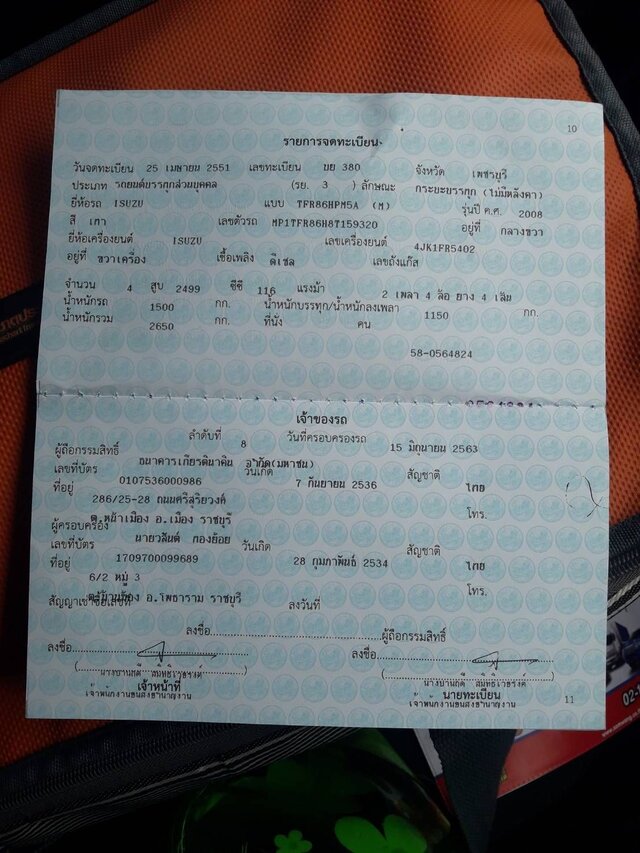 10
รายการจดทะเบียน
วันจดทะเบียน 25 เมษายน 2551 เลขทะเบียน บย 380 จังหวัด เพชรบุรี
ประเภท รถยนต์บรรทุกส่วนบุคคล (รย. 3 ) ลักษณะ กระบะบรรทุก (ไม่มีหลังคา)
ยี่ห้อรถ ISUZU แบบ TFR86HPM5A (M) รุ่นปี ค.ศ. 2008
สี เทา เลขตัวรถ MP1TFR86H8T159320 อยู่ที่ กลางขวา
ยี่ห้อเครื่องยนต์ ISUZU เลขเครื่องยนต์ 4JK1FR5402
อยู่ที่ ขวาเครื่อง เชื้อเพลิง ดีเซล เลขถังแก๊ส
จำนวน 4 สูบ 2499 ซีซี 116 แรงม้า 2 เพลา 4 ล้อ ยาง 4 เส้น
น้ำหนักรถ 1500 กก. น้ำหนักบรรทุก/น้ำหนักลงเพลา 1150 กก.
น้ำหนักรวม 2650 กก. ที่นั่ง คน
58-0564824
เจ้าของรถ
ลำดับที่ 8 วันที่ครอบครองรถ 15 มิถุนายน 2563
ผู้ถือกรรมสิทธิ์ ธนาคารเกียรตินาคิน จำกัด(มหาชน)
เลขที่บัตร 0107536000986 วันเกิด 7 กันยายน 2536 สัญชาติ ไทย
ที่อยู่ 286/25-28 ถนนศรีสุริยวงศ์ โทร.
ต.หน้าเมือง อ.เมือง ราชบุรี
ผู้ครอบครอง นายวสันต์ ทองย้อย
เลขที่บัตร 1709700099689 วันเกิด 28 กุมภาพันธ์ 2534 สัญชาติ ไทย
ที่อยู่ 6/2 หมู่ 3 โทร.
อ.โพธาราม ราชบุรี
สัญญาเช่าซื้อเลขที่ ลงวันที่
ลงชื่อ ผู้ถือกรรมสิทธิ์
ลงชื่อ ลงชื่อ
เจ้าหน้าที่ นายทะเบียน
เจ้าพนักงานขนส่งชำนาญงาน เจ้าพนักงานขนส่งชำนาญงาน
11